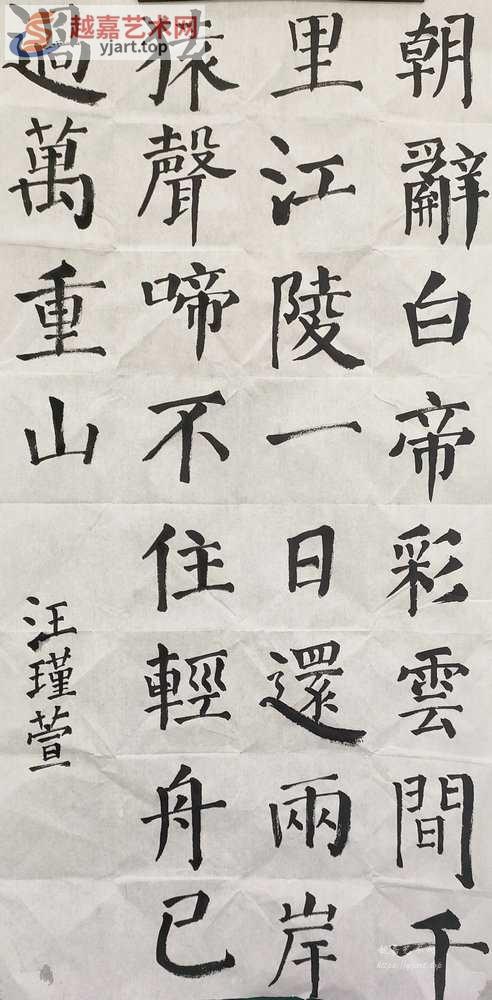 朝辭白帝彩雲間千
里江陵一日還兩岸
猿聲啼不住輕舟已
過萬重山
汪瑾萱
越嘉艺术网
yjart.top
https://yjart.top